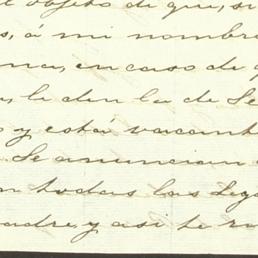 l objeto de que, si
s, á mi nombre
na, en caso de q
, le den la de Se
o y está vacant
Se anuncian
n todas las Lega
adre, y asi te r